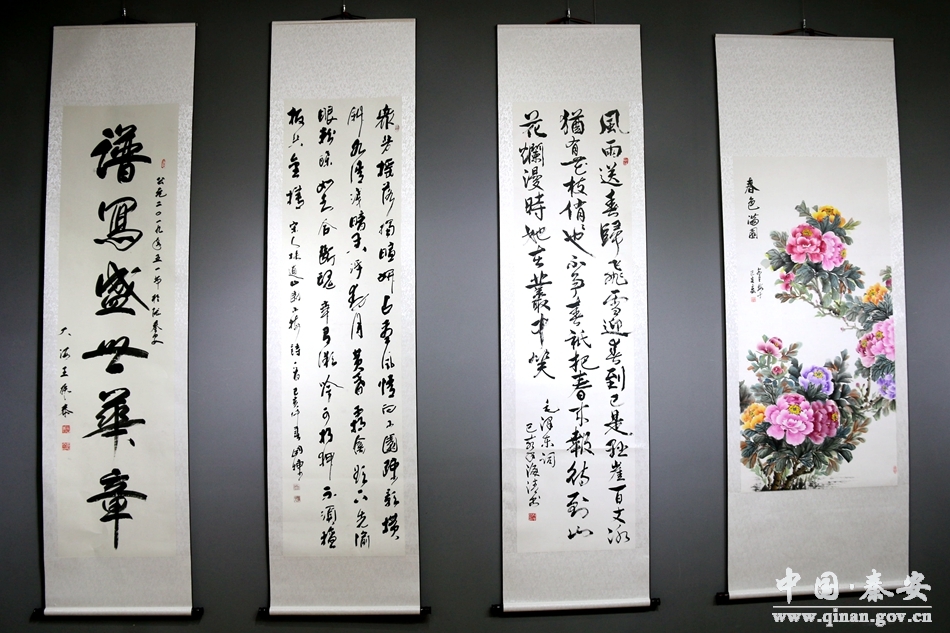 譜寫盛世華章
公元二〇一九年五一节
眾芳摇落獨暄妍占尽風情向小園疎影横
斜水清浅暗香浮動月黄昏霜禽欲下先偷
眼粉蝶如知合断魂幸有微吟可相狎不須檀
板共金樽 宋人林逋山园小梅诗一首 己亥年春
風雨送春歸飛雪迎春到已是懸崖百丈冰
猶有花枝俏俏也不争春祇把春来報待到山
花爛漫時她在叢中笑
毛泽东词
己亥年海清书
春色满園
中国·秦安
www.qinan.gov.cn